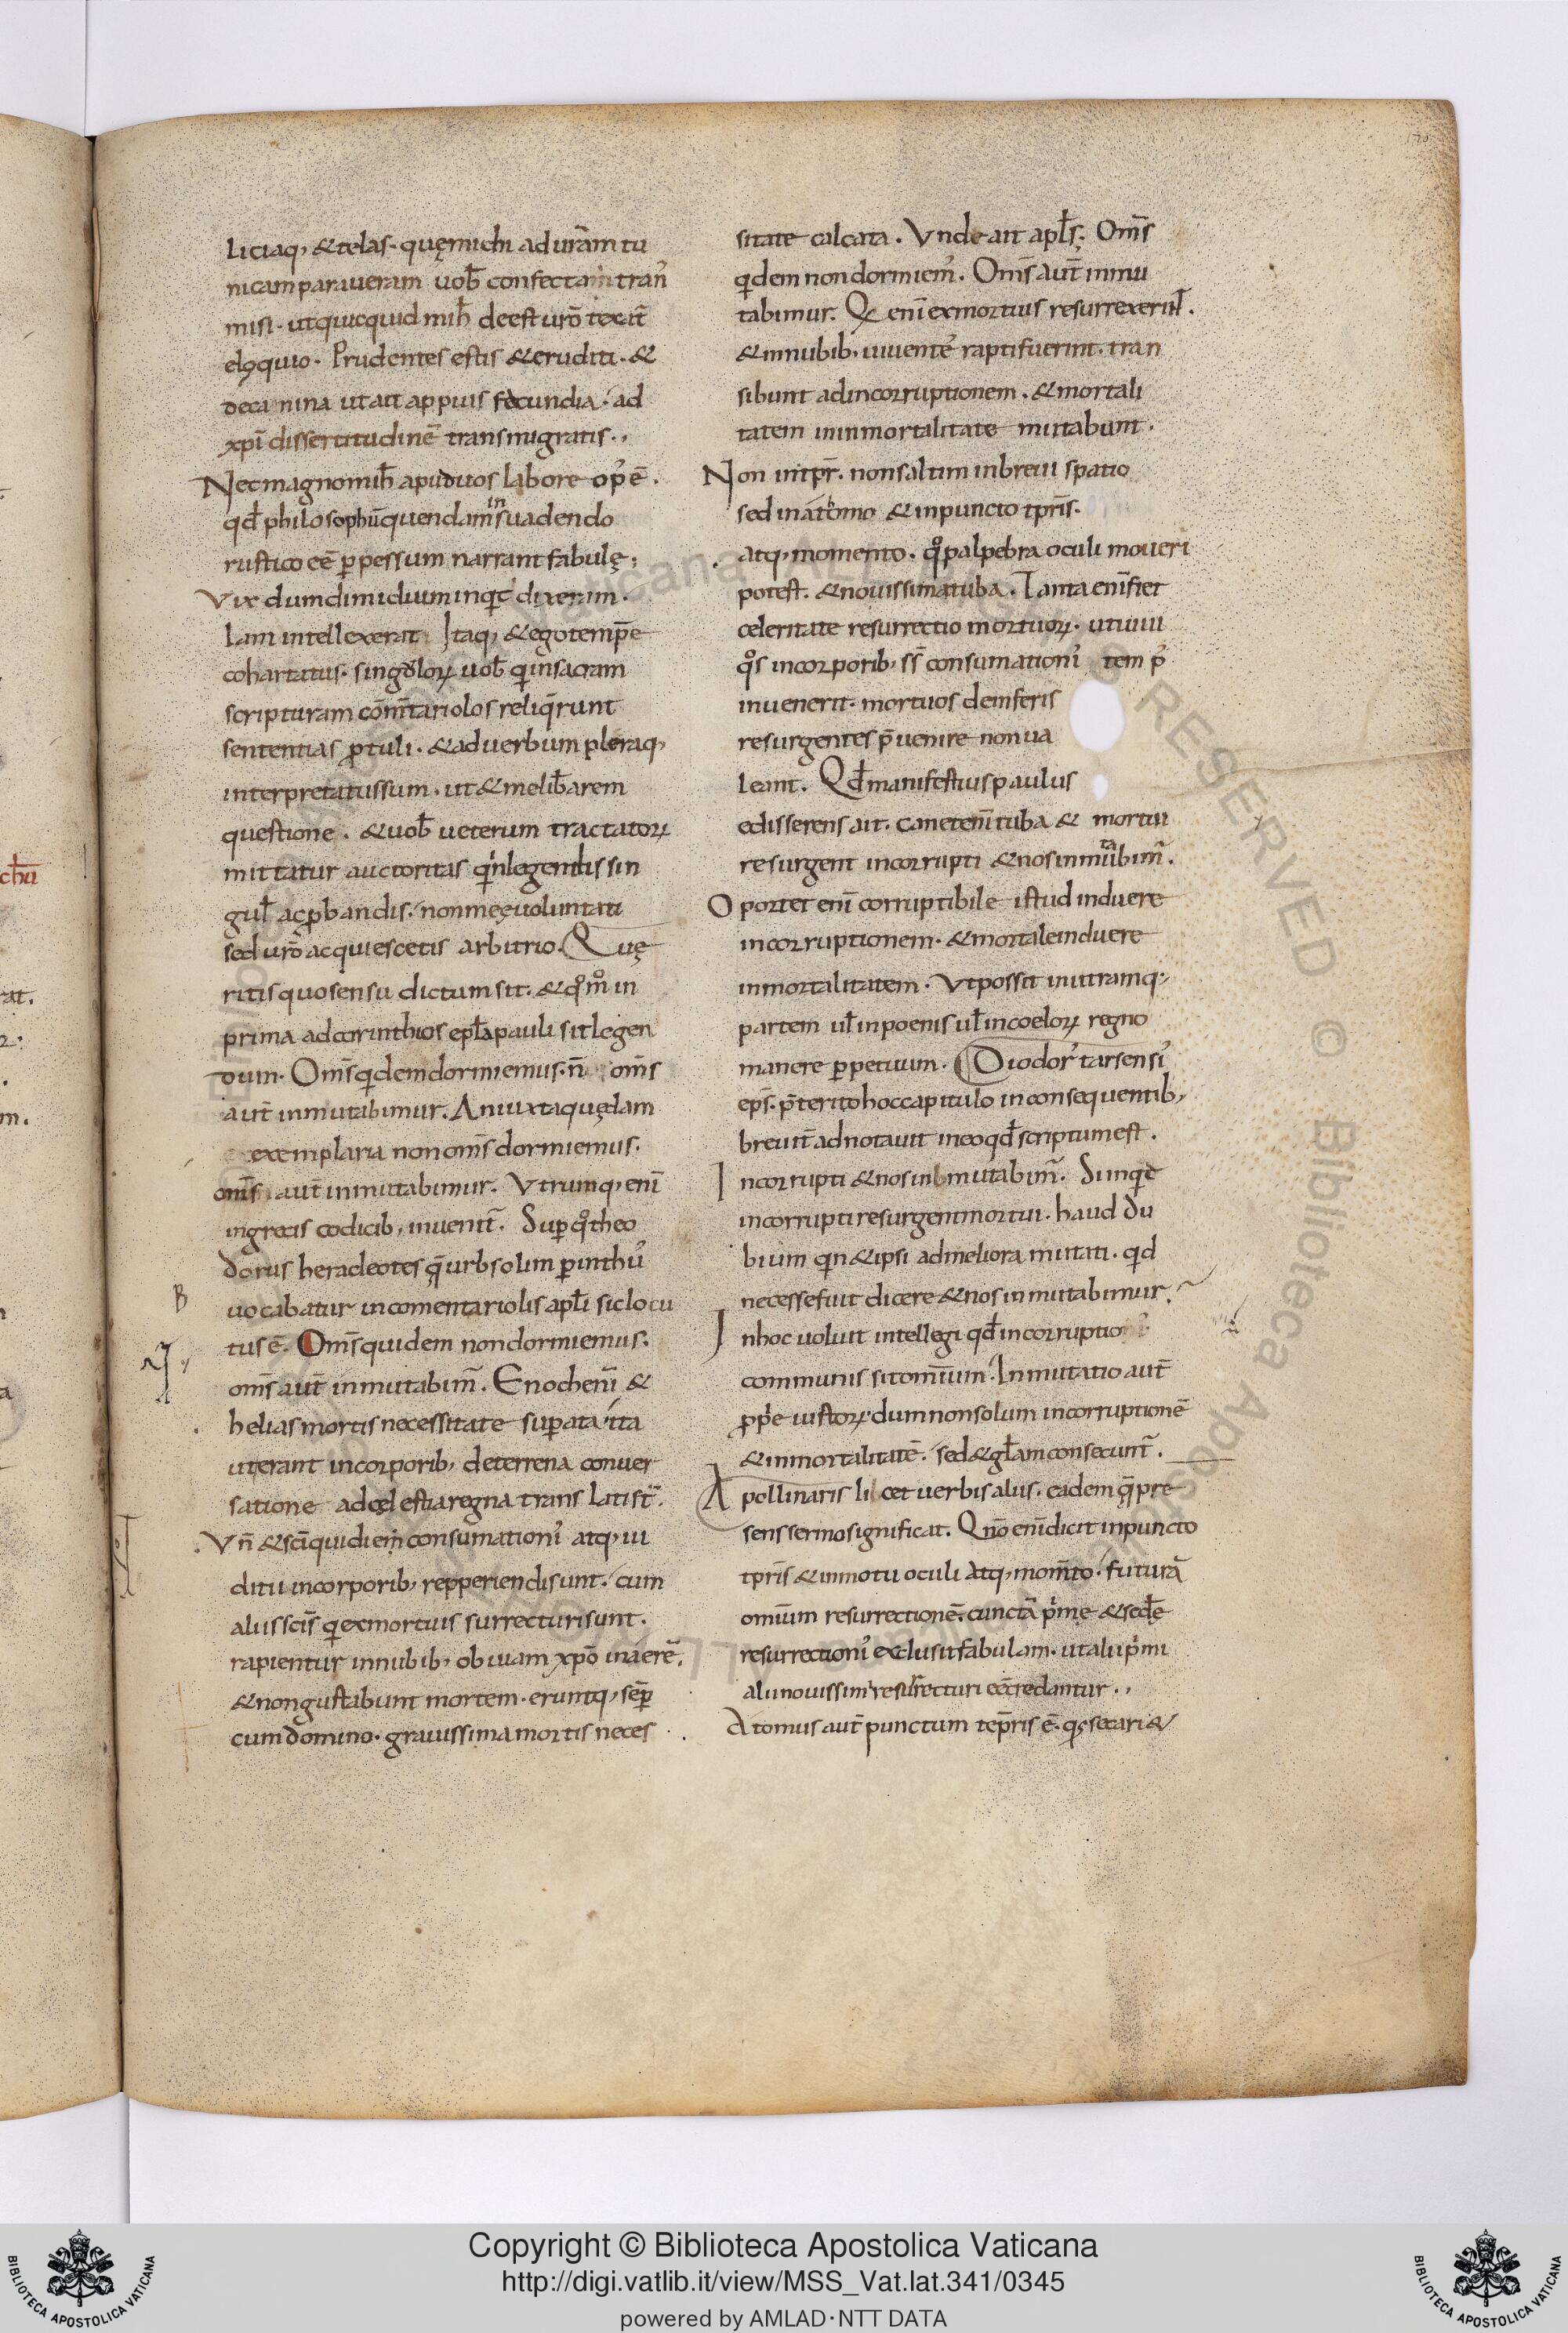 170
liciaq; & telas. quę michi ad ur̄am tu
nicam paraueram uob̄ confectam tran᾽
misi. ut quicquid mih̄ deest ur̄o texat̄
eloquio. Prudentes estis & eruditi. &
de canina ut ait appius facundia. ad
xp̄i dissertitudinē transmigratis.,
Nec magno mih̄ apud uos labore op᾽ ē.
qd̄ philosophū quendam in suadendo
rustico eē ꝑpessum narrant fabulę;
Vix dum dimidium inquit dixeram.
Iam intellexerat. Itaq; & ego temp̄e
cohartatus. singulorꝝ uob̄ qi in sacram
scripturam com̄tariolos reliq̄runt
sententias ꝓtuli. & ad uerbum pleraq;
interpretatus sum. ut & me lib̄arem
questione. & uob̄ ueterum tractatorꝝ
mittatur auctoritas qi in legendis sin
gul̄ ac ꝓbandis. non meę uoluntati
sed ur̄o acquiescetis arbitrio. Quę
ritis quo sensu dictum sit. & qom̊ in
prima ad corinthios epl̄a pauli sit legen
dum. Om̄s qidem dormiemus. n̄ om̄s
aut̄ inmutabimur. An iuxta quędam
exemplaria non om̄s dormiemus.
om̄s aut̄ inmutabimur. Vtrumq; eni̅
in grecis codicib; inuenit̄. Sup̱ qo theo
dorus heracleotes q̄ urbs olim ꝑinthu᾽
uocabatur in comentariolis apl̄i sic locu
B
tus ē. Om̄s quidem non dormiemus.
om̄s aut̄ inmutabim̄. Enoch eni̅ &
helias mortis necessitate suꝑata. ita
ut erant in corporib; de terrena conuer
satione ad cęlestia regna translati st̄.
Vn̄ & sc̄i qui diem consumationi᾽ atq; iu
ditii in corporib; repperiendi sunt. cum
aliis sc̄is qi ex mortuis surrecturi sunt.
rapientur in nubib; obuiam xp̄o in aerē.
& non gustabunt mortem. eruntq; semꝑ
cum domino. grauissima mortis neces
sitate calcata. Vnde ait apl̄s. Om̄s
qidem non dormiem᾽. Om̄s aut̄ inmu
tabimur. Qi eni̅ ex mortuis resurrexerint.
& in nubib; uiuente᾽ rapti fuerint. tran
sibunt ad incorruptionem. & mortali
tatem in inmortalitate mutabunt.
Non intpr̄. non saltim in breui spatio
sed in atomo & in puncto tp̄ris.
atq; momento. qo palpebra oculi moueri
potest. & nouissima tuba. Tanta eni̅ fiet
celeritate resurrectio mortuorꝝ. ut uiui
qos in corporib; ss̄ consumationi᾽ temp᾽
inuenerit. mortuos de inferis
resurgentes p̄uenire non ua
leant. Qd̄ manifestius paulus
edisserens ait. canet eni̅ tuba & mortui
resurgent incorrupti & nos inmutabim̄.
Oportet eni̅ corruptibile istud induere
incorruptionem. & mortale induere
inmortalitatem. Vt possit in utramq;
partem ul̄ in poenis ul̄ in coelorꝝ regno
manere ꝑpetuum. Diodor᾽ tarsensi᾽
ep̄s. p̄terito hoc capitulo in consequentib;
breuit̄ adnotauit in eo qd̄ scriptum est.
Incorrupti & nos inmutabim̄. Si inqid
incorrupti resurgent mortui. haud du
bium qin & ipsi ad meliora mutati. qid
necesse fuit dicere & nos inmutabimur.
In hoc uoluit intellegi qd̄ incorruptio
communis sit omium̄. Inmutatio aut̄
ꝓprie iustorꝝ. dum non solum incorruptionē
& inmortalitatē. sed & gl̄am consecunt̄.
Apollinaris licet uerbis aliis. eadem q̄ pre
sens sermo significat. Qno eni̅ dicit in puncto
tp̄ris & in motu oculi atq; mom̄to. futurā
omium̄ resurrectionē. cunctā p̱imę & sed̄ę
resurrectioni᾽ exclusit fabulam. ut alii p̱imi
alii nouissimi resurrecturi eē credantur.,
Atomus aut̄ punctum tep̄ris ē. qi secari &
Copyright © Biblioteca Apostolica Vaticana
http://digi.vatlib.it/view/MSS_Vat.lat.341/0345
powered by AMLAD·NTT DATA
BIBLIOTECA APOSTOLICA VATICANA
BIBLIOTECA APOSTOLICA VATICANA